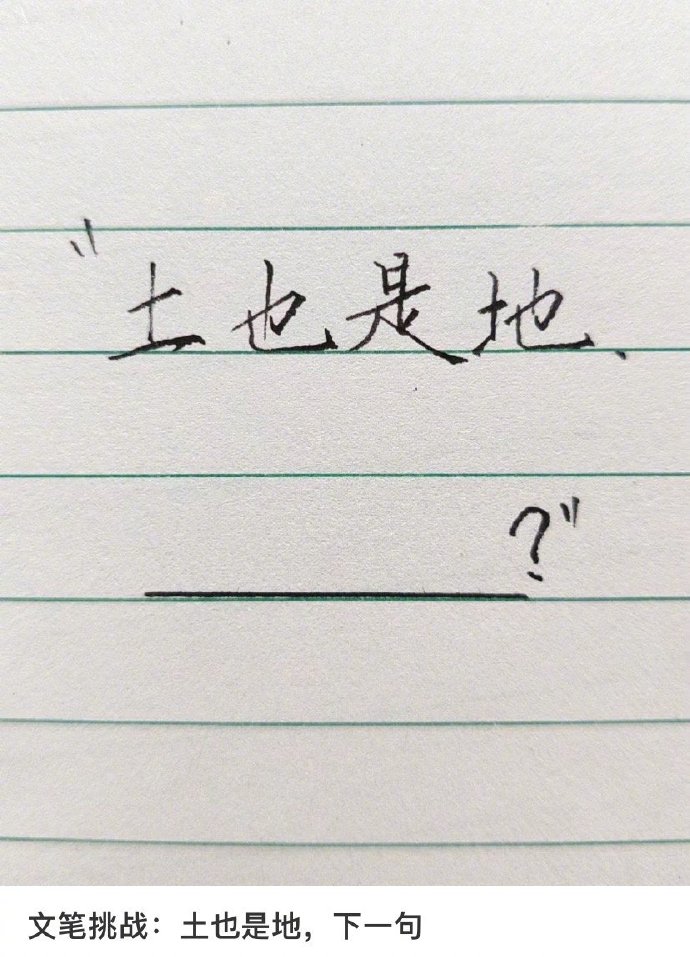 “土也是地、
？”
文笔挑战：土也是地，下一句